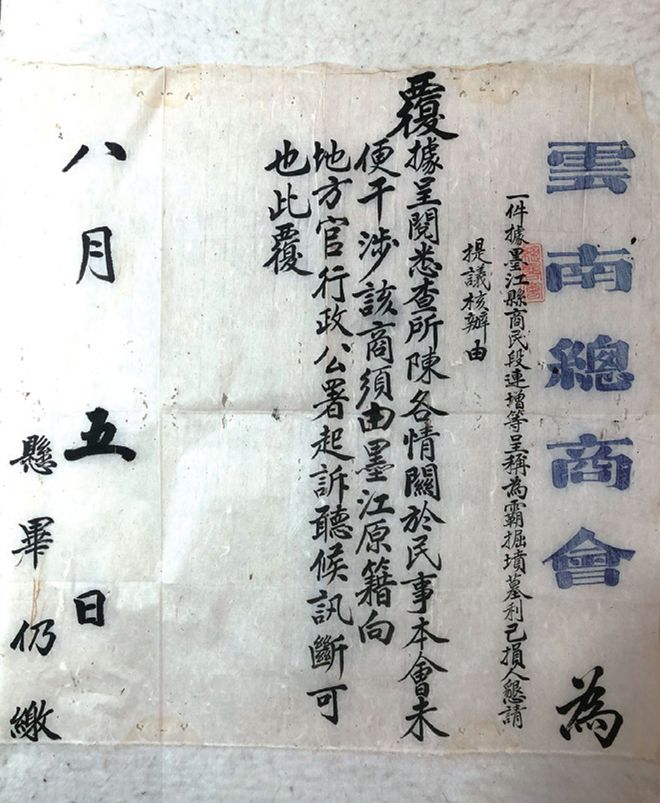 雲南總商會為
一件據墨江縣商民段連增等呈稱為霸掘墳墓利己損人懇請
提議核辦由
覆據呈閱悉查所陳各情關於民事本會未
便干涉該商須由墨江原籍向
地方官行政公署起訴聽候訊斷可
也此覆
八月五日
懸畢仍繳